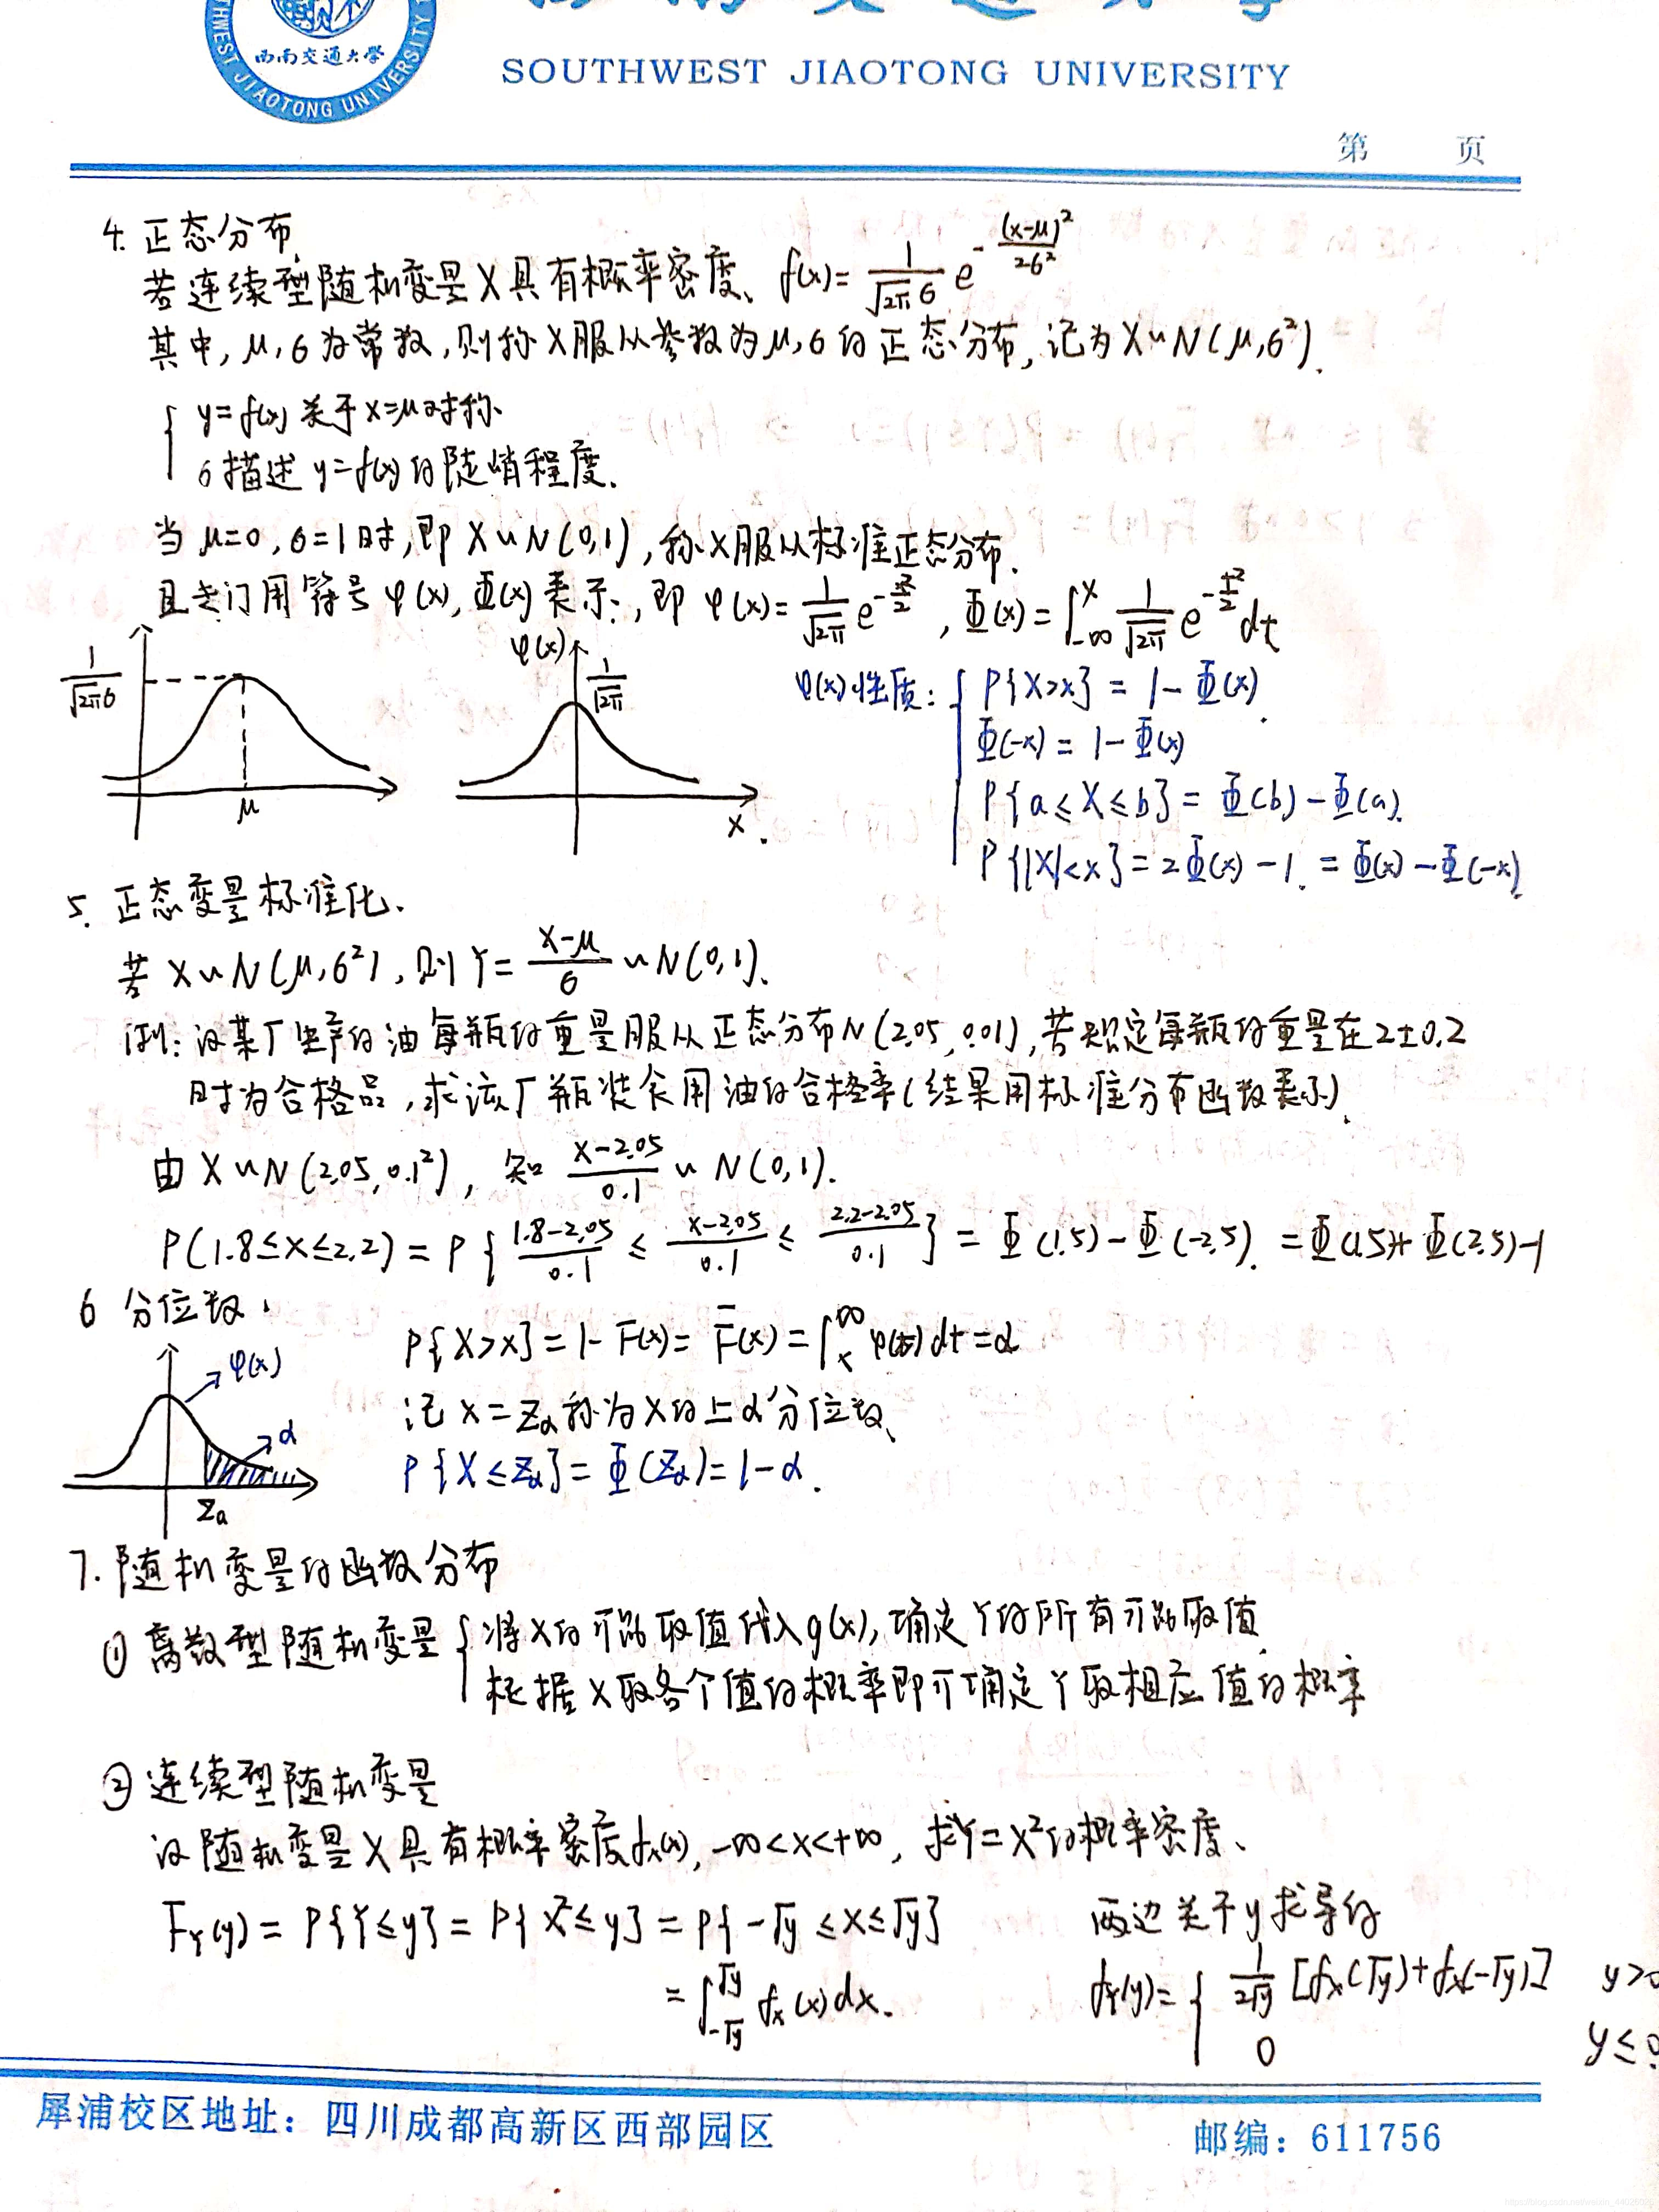 西南交通大學
SOUTHWEST JIAOTONG UNIVERSITY
第 页
4. 正态分布
若连续型随机变量X具有概率密度、f(x)= 1/(√2π σ) e^{-(x-μ)²/2σ²}
其中, μ, σ为常数, 则称X服从参数为μ, σ的正态分布, 记为X~N(μ,σ²).
{ y=f(x)关于x=μ对称.
σ描述y=f(x)的陡峭程度.
当μ=0, σ=1时, 即X~N(0,1), 称X服从标准正态分布.
且专门用符号φ(x), Φ(x)表示, 即φ(x)= 1/√2π e^{-x²/2}, Φ(x)=∫_{-∞}^{x} 1/√2π e^{-t²/2} dt
1/(√2π σ)
μ
φ(x)
1/√2π
x.
φ(x)性质: { P{X>x} = 1-Φ(x).
Φ(-x) = 1-Φ(x)
P{a≤X≤b} = Φ(b)-Φ(a).
P{|X|<x} = 2Φ(x)-1. = Φ(x)-Φ(-x)
5. 正态变量标准化.
若X~N(μ,σ²), 则Y= (X-μ)/σ ~N(0,1).
例: 设某厂生产的油每瓶的重量服从正态分布N(2.05, 0.01), 若规定每瓶的重量在2±0.2
时为合格品, 求该厂瓶装食用油的合格率(结果用标准分布函数表示).
由X~N(2.05, 0.1²), 知 (X-2.05)/0.1 ~ N(0,1).
P(1.8≤x≤2.2) = P{ (1.8-2.05)/0.1 ≤ (x-2.05)/0.1 ≤ (2.2-2.05)/0.1 } = Φ(1.5)-Φ(-2.5). =Φ(1.5)+Φ(2.5)-1
6 分位数.
φ(x)
α
Za
P{X>x} = 1-F(x) = F̄(x) = ∫_{x}^{∞} φ(t)dt = α
记x=Zα称为X的上α分位数、
P{X≤Zα} = Φ(Zα) = 1-α.
7. 随机变量的函数分布
① 离散型随机变量 { 将X的可能取值代入g(x), 确定Y的所有可能取值
根据X取各个值的概率即可确定Y取相应值的概率
② 连续型随机变量
设随机变量X具有概率密度fx(x), -∞<x<+∞, 求Y=X²的概率密度、
F_Y(y) = P{Y≤y} = P{X²≤y} = P{-√y ≤x≤√y}
= ∫_{-√y}^{√y} fx(x)dx.
两边关于y求导得
f_Y(y) = { 1/(2√y) [fx(√y)+fx(-√y)] y>0
0 y≤0
犀浦校区地址：四川成都高新区西部园区 邮编：611756